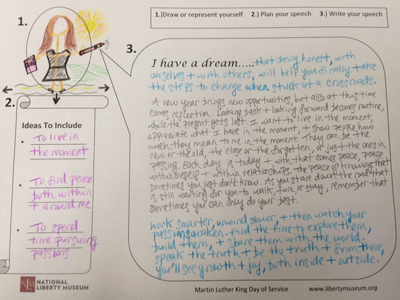 1.)Draw or represent yourself 2.) Plan your speech 3.) Write your speech
1.
3.
I have a dream.....that being honest, with
ourselves + with others, will help you to really take
the steps to change when stuck at a crossroads.
A new year brings new opportunities, but also at this time
comes reflection. Looking back + looking forward becomes routine,
while the present gets lost. I want to live in the moment,
appreciate what I have in the moment, + show people how
much they mean to me in the moment. They can be the
new or the old, the close or the forgotten, or just the ones in
passing. Each day is today + with that comes peace, peace
within myself + within relationships. The peace of knowing that
sometimes you just don't know. As you stare down the road that
is still waiting for you to walk, run, or stay, remember that
sometimes you can only do your best.
Work smarter, unwind slower, + then watch your
passions awaken. Find the time to explore them,
build them, + share them with the world.
Speak the truth + be the truth + from there,
you'll see growth + joy, both inside + outside.
2.
Ideas To Include
To live in
the moment
To find peace
both within
+ around me
To spend
time pursuing
passions
NATIONAL
LIBERTY MUSEUM
Martin Luther King Day of Service
www.libertymuseum.org